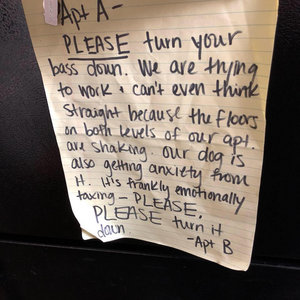 Apt A-
PLEASE turn your
bass down. We are trying
to work + can't even think
straight because the floors
on both levels of our apt.
are shaking. Our dog is
also getting anxiety from
it. It's frankly emotionally
taxing - PLEASE,
PLEASE turn it
down
-Apt B